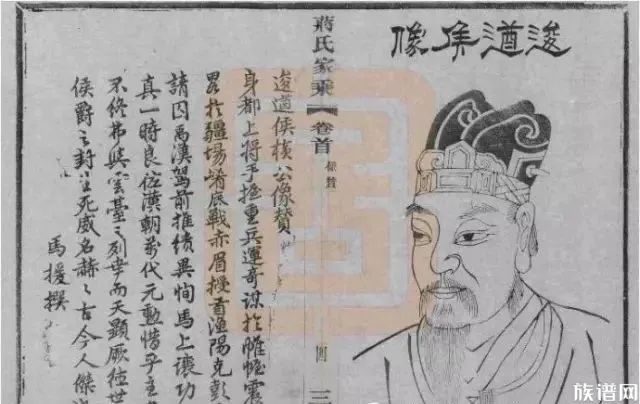 浚遒侯像
蔣氏家乘 卷首 像贊
三
逡遒侯橫公像贊
身都上將手握重兵運奇謀於帷幄震
畧於疆場崤底戰赤眉授首漁陽克彭
請囚禹漢駕前推績異恂馬上讓功
真一時良佐漢朝前代元勳惜乎主
不終弗與雲臺之列幸而天顯厥位世
侯爵之封生死威名赫之古今人傑
馬援撰
族谱网